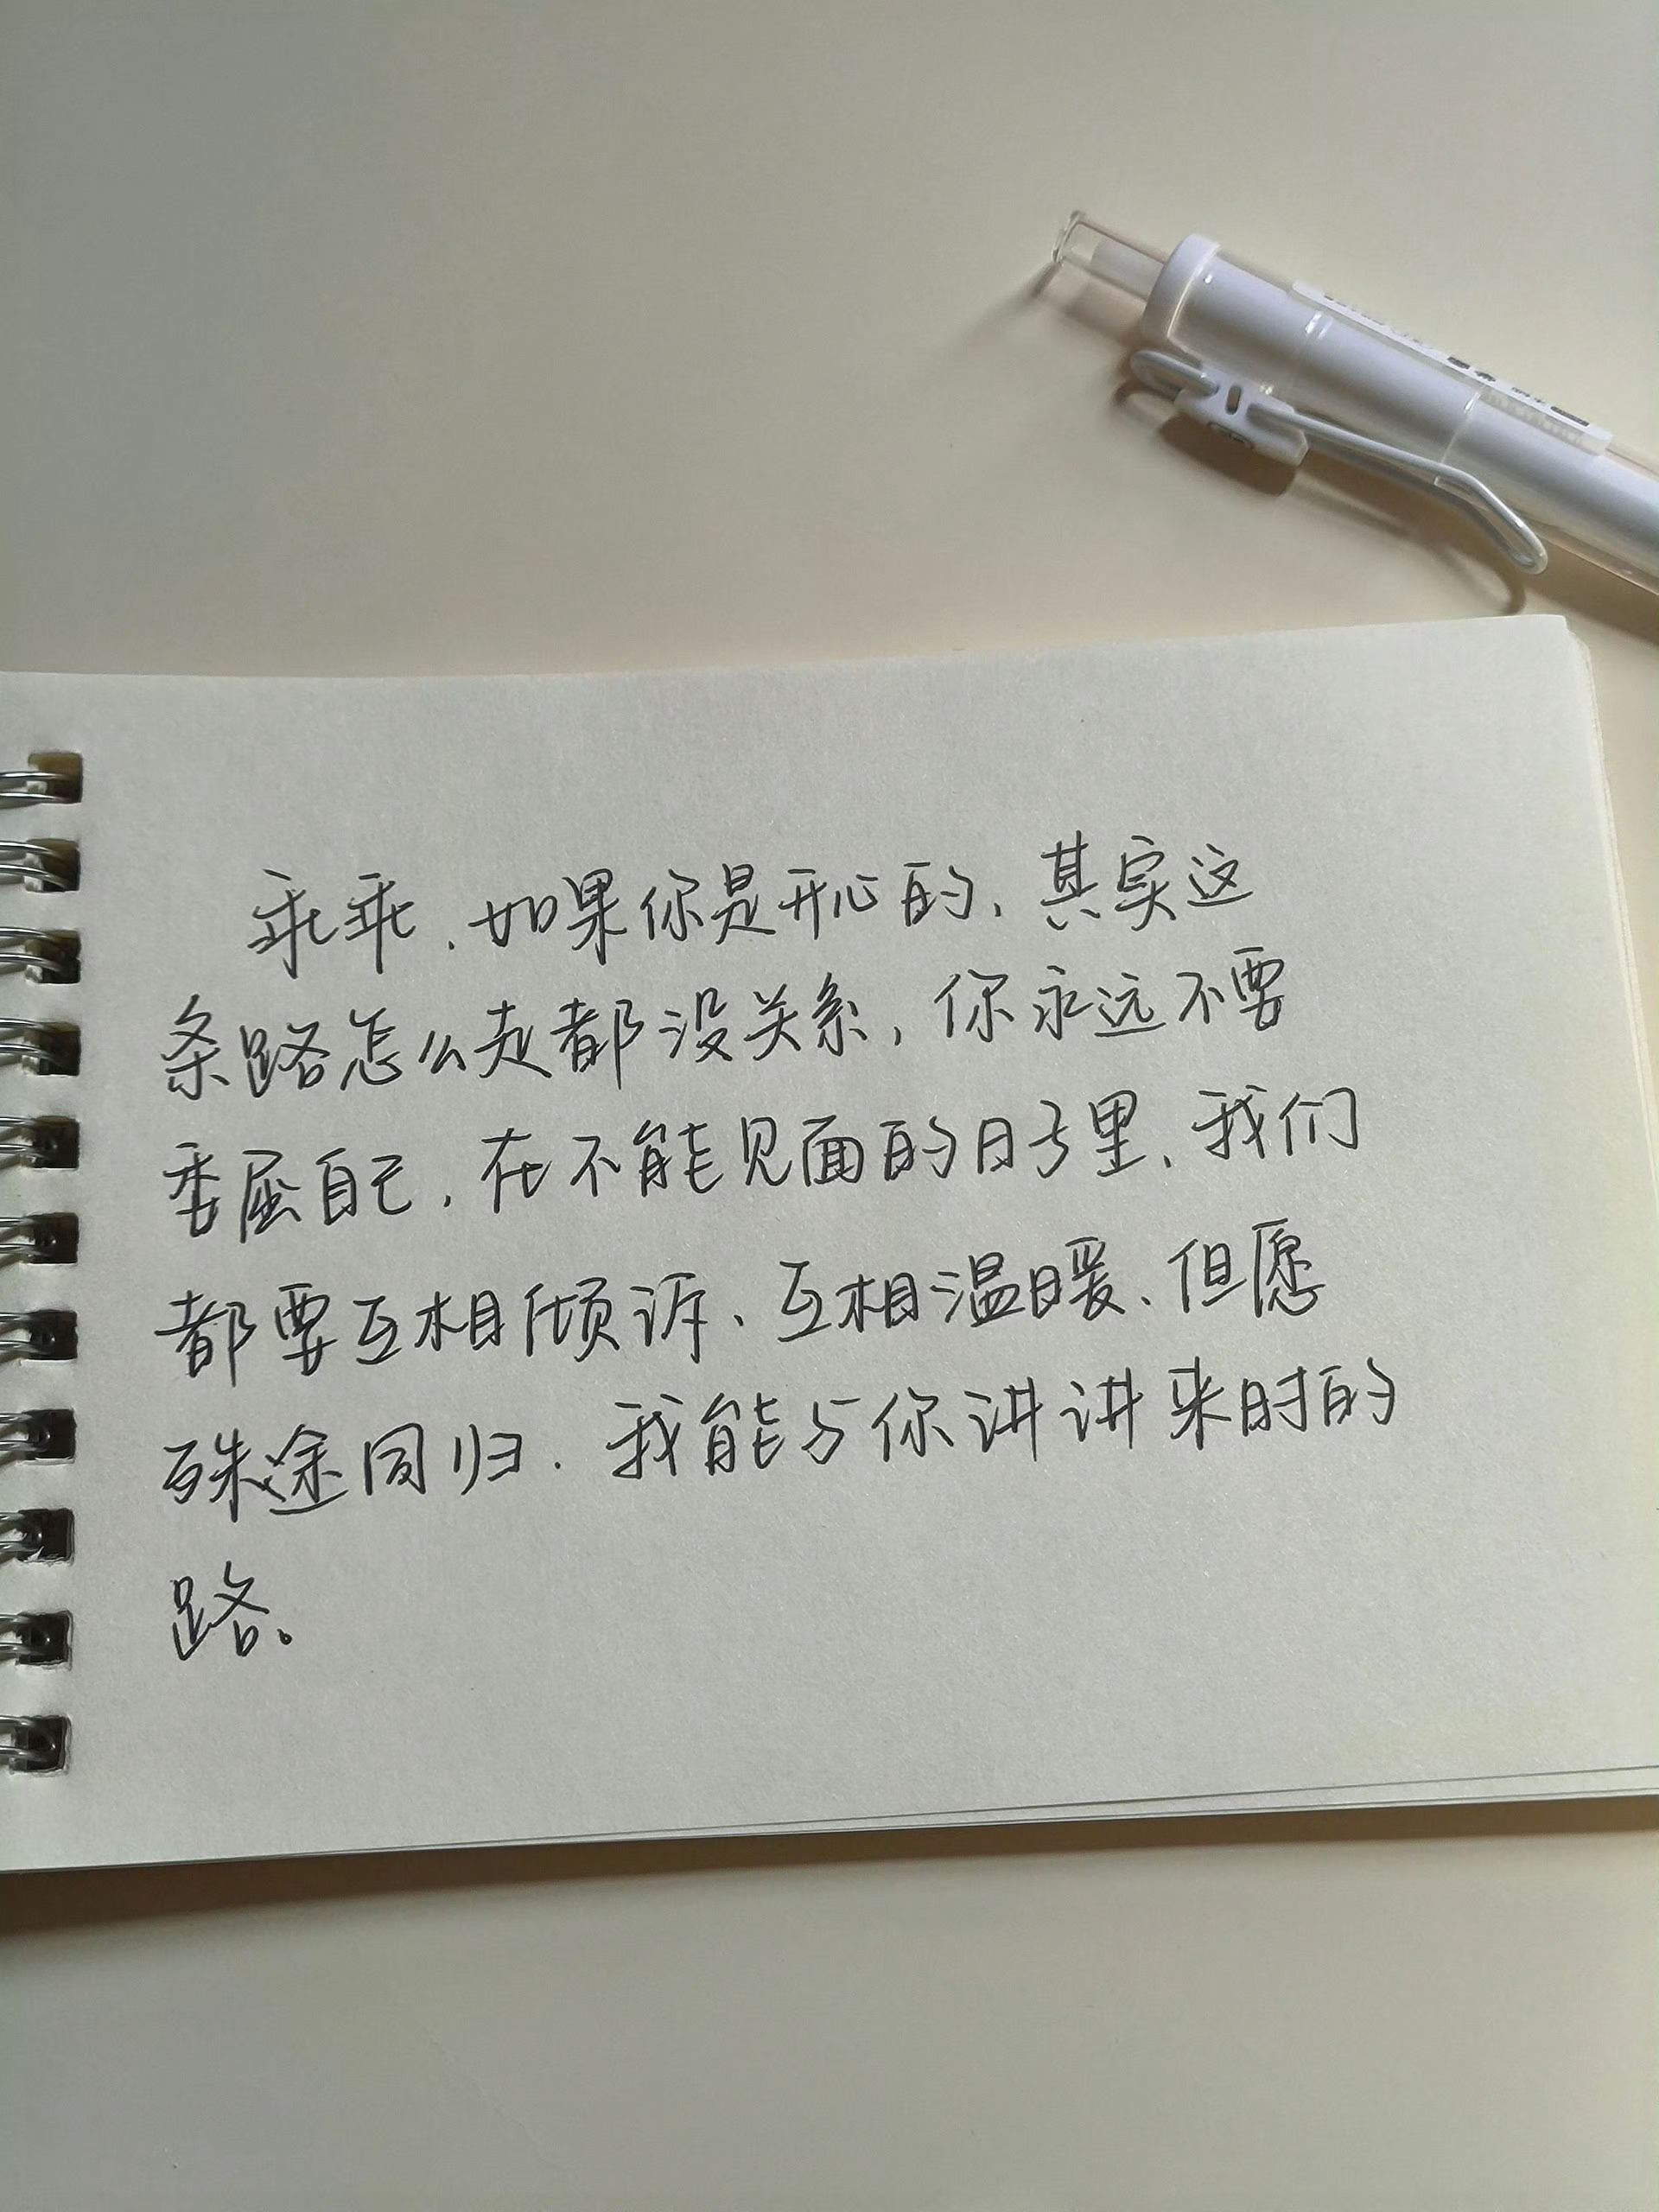 乖乖，如果你是开心的，其实这
条路怎么走都没关系，你永远不要
委屈自己，在不能见面的日子里，我们
都要互相倾诉、互相温暖、但愿
殊途同归．我能与你讲讲来时的
路。